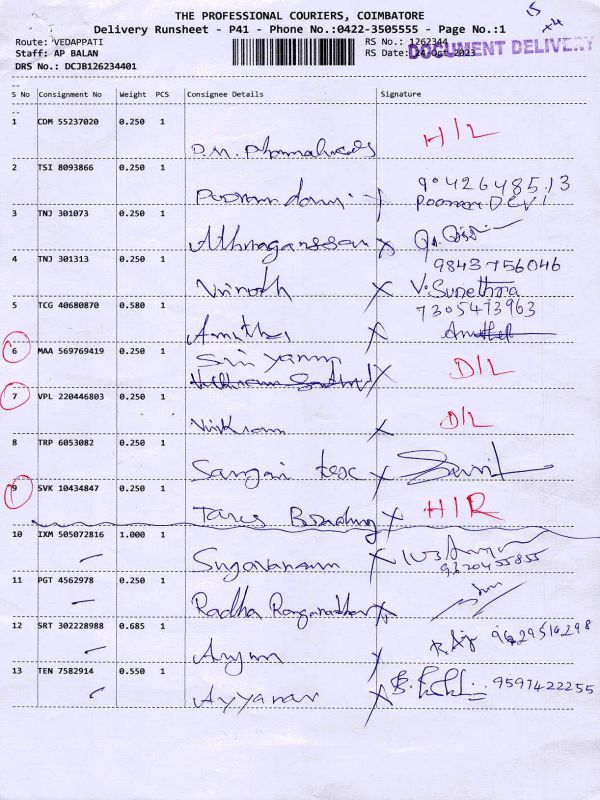 15
x4
THE PROFESSIONAL COURIERS, COIMBATORE
Delivery Runsheet - P41 - Phone No.:0422-3505555 - Page No.:1
Route: VEDAPPATI
RS No.: 1262344
DOCUMENT DELIVERY
Staff: AP BALAN
RS Date: 24-Oct-2023
DRS No.: DCJB126234401
S No Consignment No Weight PCS Consignee Details Signature
1 CDM 55237020 0.250 1
H/L
2 TSI 8093866 0.250 1
Poornundami
Poorna DEVI
3 TNJ 301073 0.250 1
Athmaganssan x
4 TNJ 301313 0.250 1
9843756046
Vrinodh x V. Sunethra
5 TCG 40680870 0.580 1
7305473963
Amitha x
6 MAA 569769419 0.250 1
Sri yamm x D/L
7 VPL 220446803 0.250 1
Vinkram x D/L
8 TRP 6053082 0.250 1
Sangari tex x
9 SVK 10434847 0.250 1
x H/R
10 IXM 505072816 1.000 1
Sugavanam x
9620455855
11 PGT 4562978 0.250 1
Radha Ranganathan x
12 SRT 302228988 0.685 1
Arjun x RAJ 9629516298
13 TEN 7582914 0.550 1
Ayyanar x 9597422255